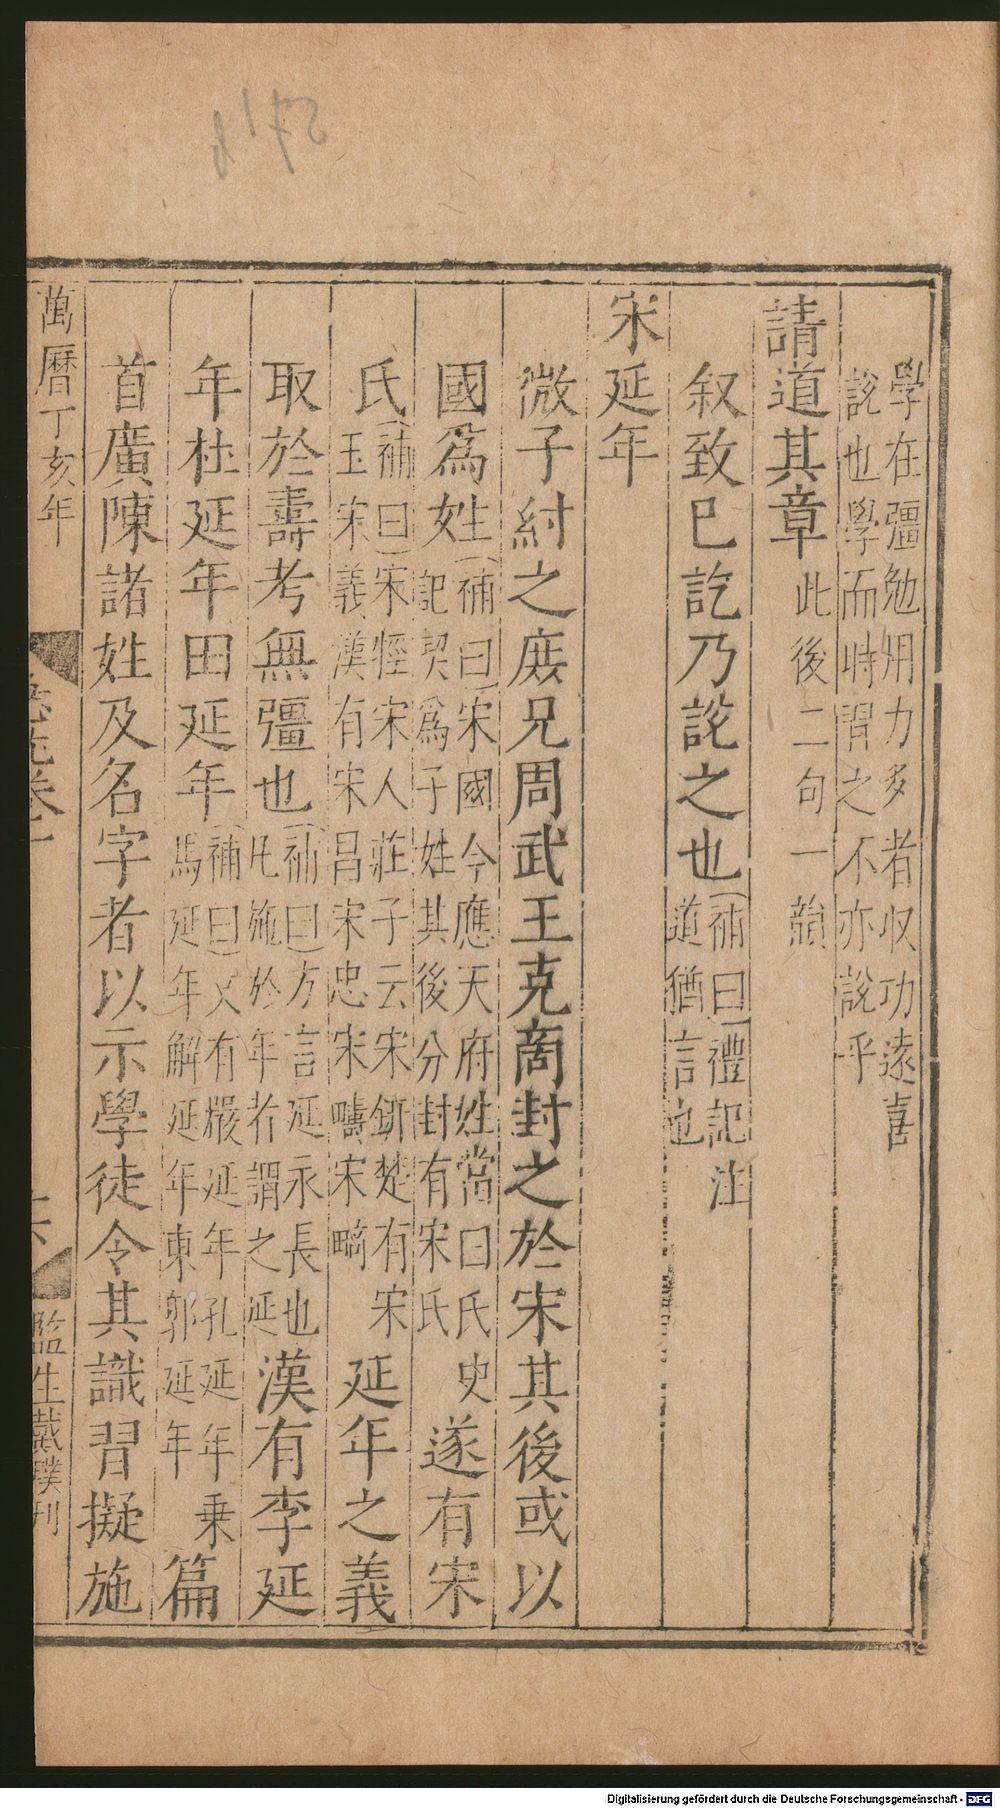 學在彊勉用力多者収功遠喜
說也學而時習之不亦說乎
請道其章 此後二句一韻
叙致已訖乃說之也 補曰禮記注
道猶言也
宋延年
微子紂之庶兄周武王克商封之於宋其後或以
國爲姓 補曰宋國今應天府姓當曰氏史
記契爲子姓其後分封有宋氏
遂有宋
氏 補曰宋牼宋人莊子云宋鈃楚有宋
玉宋義漢有宋昌宋忠宋疇宋畸
延年之義
取於壽考無彊也 補曰方言延永長也
凡施於年者謂之延
漢有李延
年杜延年田延年 補曰又有嚴延年孔延年乗
馬延年解延年東郭延年
篇
首廣陳諸姓及名字者以示學徒令其識習擬施
萬曆丁亥年
監生戴璞刊
Digitalisierung gefördert durch die Deutsche Forschungsgemeinschaft - DFG